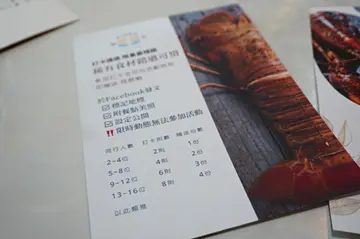 稀有食材錯過可惜
於Facebook發文
☑標記地標
☑附餐點美照
☑設定公開
‼限時動態無法參加活動
同行人數 打卡則數 贈送份數
2~4位 2則 1份
5~8位 4則 2份
9~12位 6則 3份
13~16位 8則 4份
以此類推